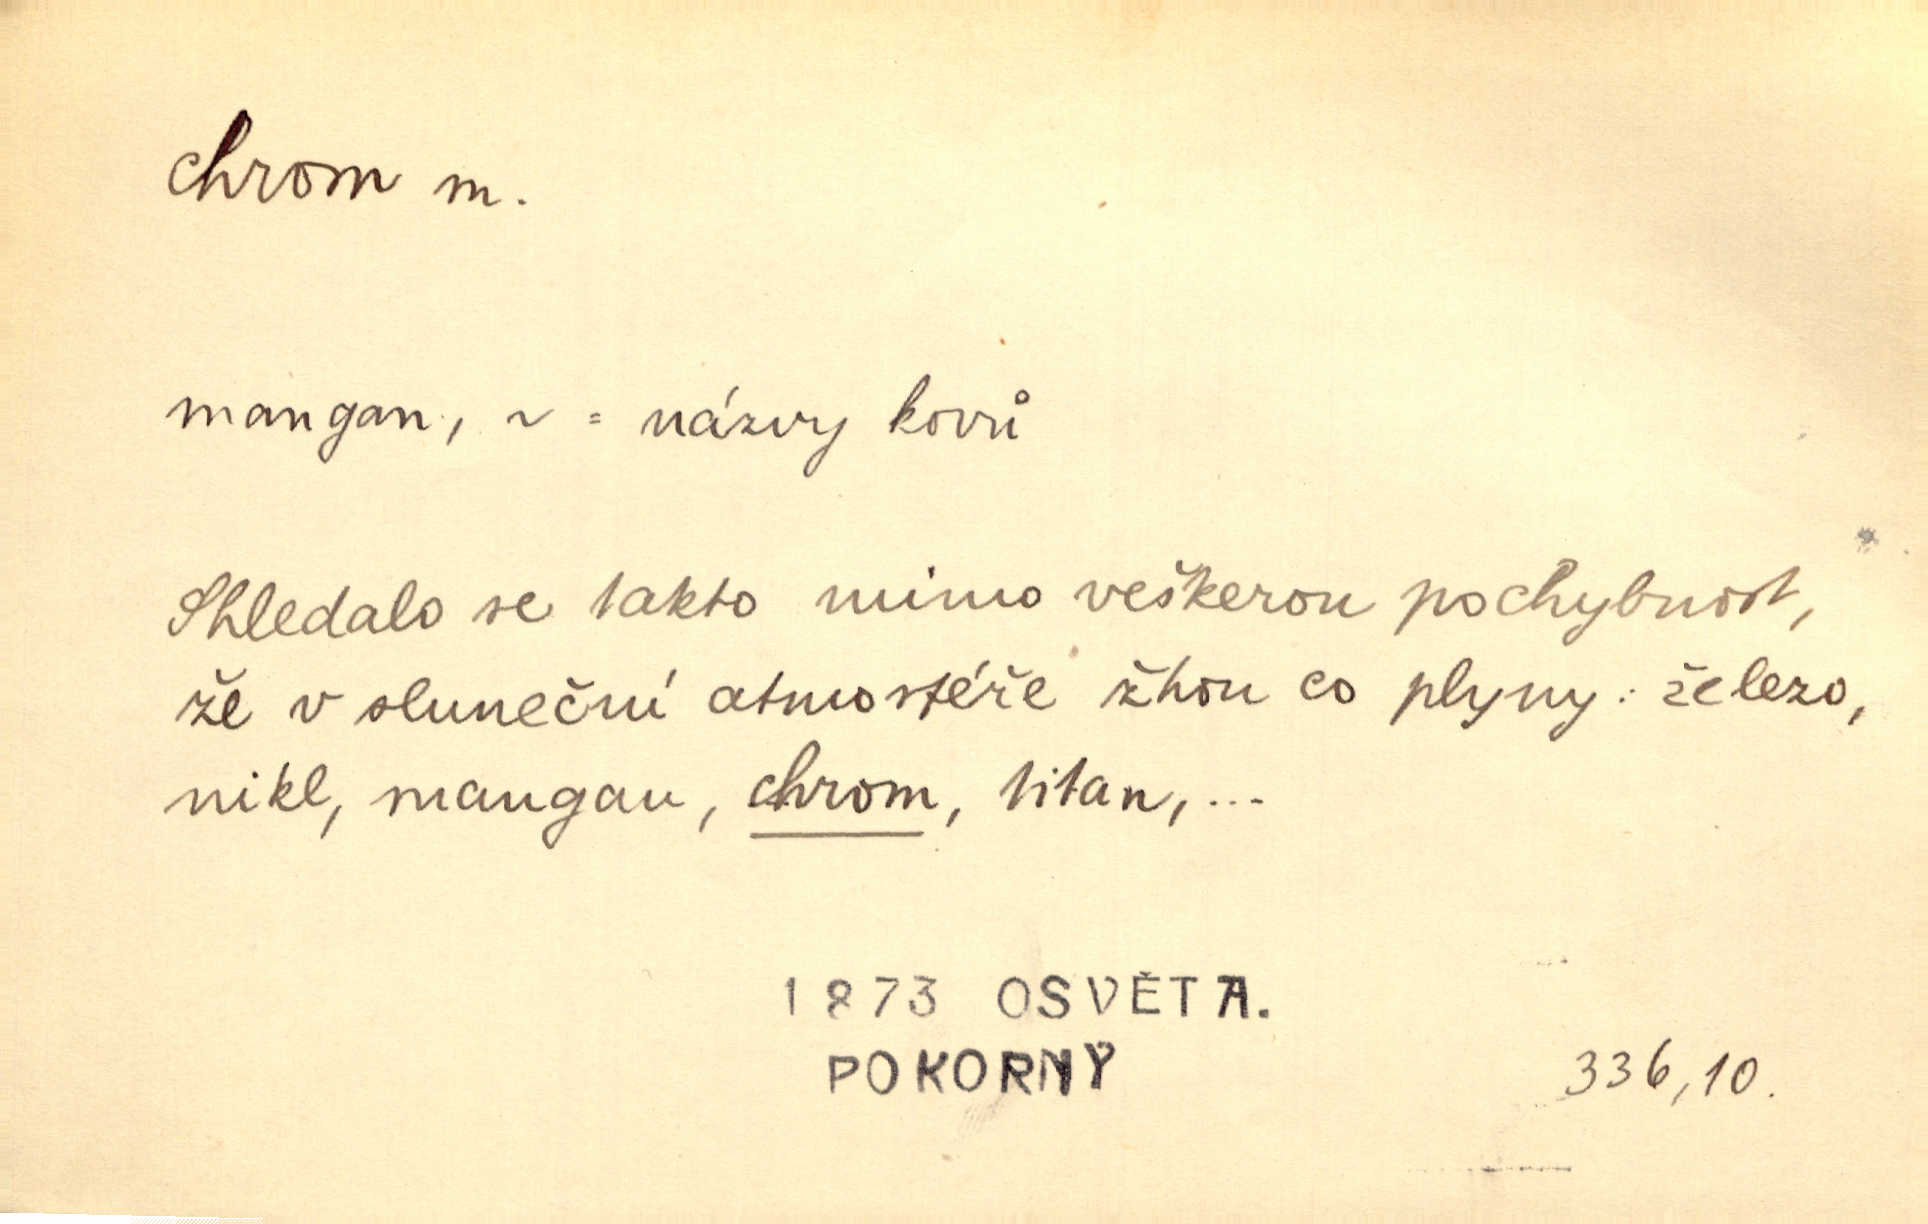 chrom m.
mangan, ~ = názvy kovů
Shledalo se takto mimo veškerou pochybnost,
že v sluneční atmosféře žhou co plyny: železo,
nikl, mangan, chrom, titan, ...
1873 OSVĚTA.
POKORNÝ
336,10.